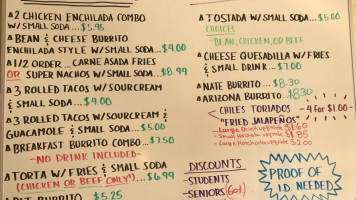 2 CHICKEN ENCHILADA COMBO
W/ SMALL SODA... $5.95
BEAN & CHEESE BURRITO
ENCHILADA STYLE W/ SMALL SODA... $4.00
1/2 ORDER ... CARNE ASADA FRIES
OR SUPER NACHOS W/ SMALL SODA... $8.99
3 ROLLED TACOS W/ SOURCREAM
& SMALL SODA... $4.00
3 ROLLED TACOS W/ SOURCREAM &
GUACAMOLE & SMALL SODA... $5.00
BREAKFAST BURRITO COMBO... $7.50
-NO DRINK INCLUDED-
TORTA W/ FRIES & SMALL SODA
(CHICKEN OR BEEF ONLY!)... $6.99
BURRITO $5.25
TOSTADA W/ SMALL SODA... $5.00
CHOICES
BEAN, CHICKEN, OR BEEF
CHEESE QUESADILLA W/ FRIES
& SMALL DRINK... $7.00
NATE BURRITO - $8.30
ARIZONA BURRITO - $8.30
CHILES TORIADOS - 4 FOR $1.00-
"FRIED JALAPEÑOS"
-Large Drink upgrade $1.60
-Large Horchata upgrade $2.00
DISCOUNTS
-STUDENTS
-SENIORS (60+)
PROOF OF
I.D. NEEDED